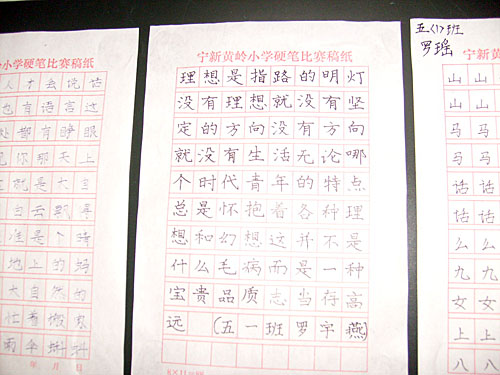 小学硬笔比赛稿纸
人才会说话
也有语言过
处都有睁眼
见你那天上
就是大自
白云
是个
地上的妈
大自然的
忙着搬
雨伞蝌蚪
年 月 日
宁新黄岭小学硬笔比赛稿纸
理想是指路的明灯
没有理想就没有坚
定的方向没有方向
就没有生活无论哪
个时代青年的特点
总是怀抱着各种理
想和幻想这并不是
什么毛病而是一种
宝贵品质志当存高
远 (五一班罗宇燕)
五(1)班
罗瑶
宁新黄
山山
山山
马马
马马
话话
话话
么么
九九
女女
上上
八八